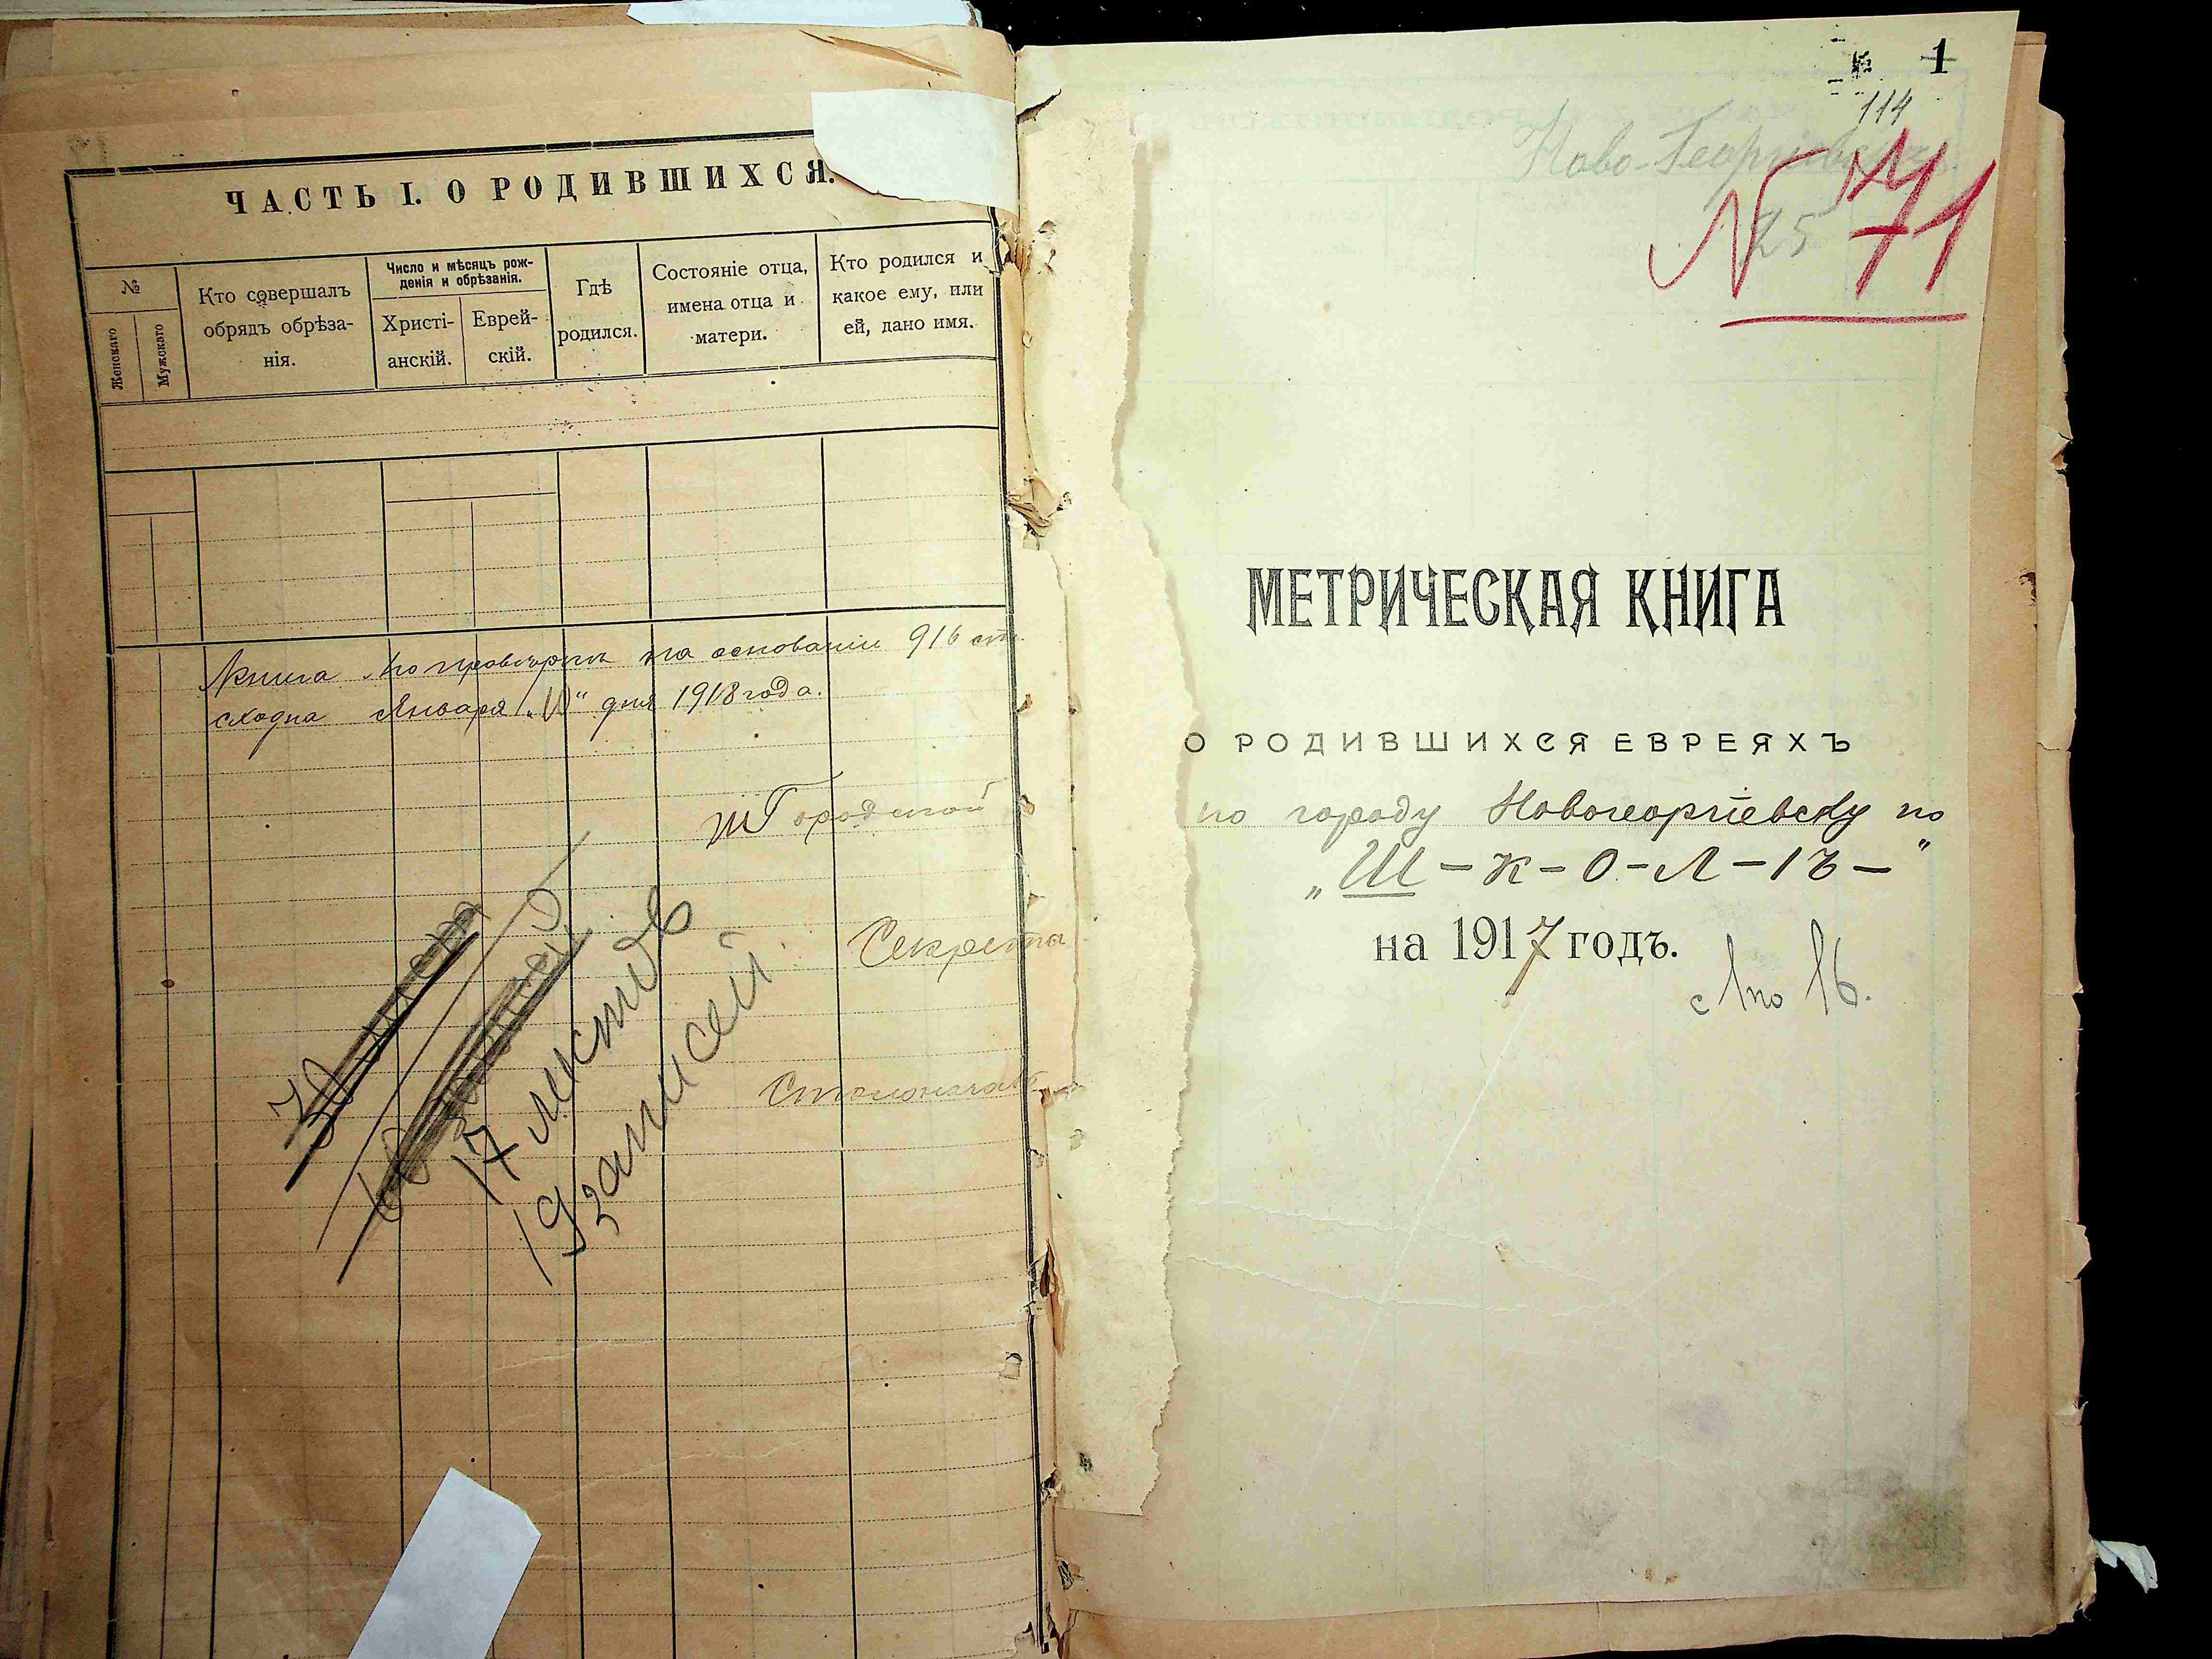 ЧАСТЬ I. О РОДИВШИХСЯ.
№
Женскаго
Мужскаго
Кто совершалъ
обрядъ обрѣза-
нія.
Число и мѣсяцъ рож-
денія и обрѣзанія.
Христі-
анскій.
Еврей-
скій.
Гдѣ
родился.
Состояніе отца,
имена отца и
матери.
Кто родился и
какое ему, или
ей, дано имя.
Книга по провѣркѣ на основаніи 916 ст.
сходна Января „10“ дня 1918 года.
Городской
Секрета
Столоначал
17 листов
19 записей
№ 1
114
Ново-Георгіевск
25
N 71
МЕТРИЧЕСКАЯ КНИГА
О РОДИВШИХСЯ ЕВРЕЯХЪ
по городу Новогеоргіевску по
„Ш-к-о-л-ѣ-“
на 1917 годъ.
с 1 по 16.